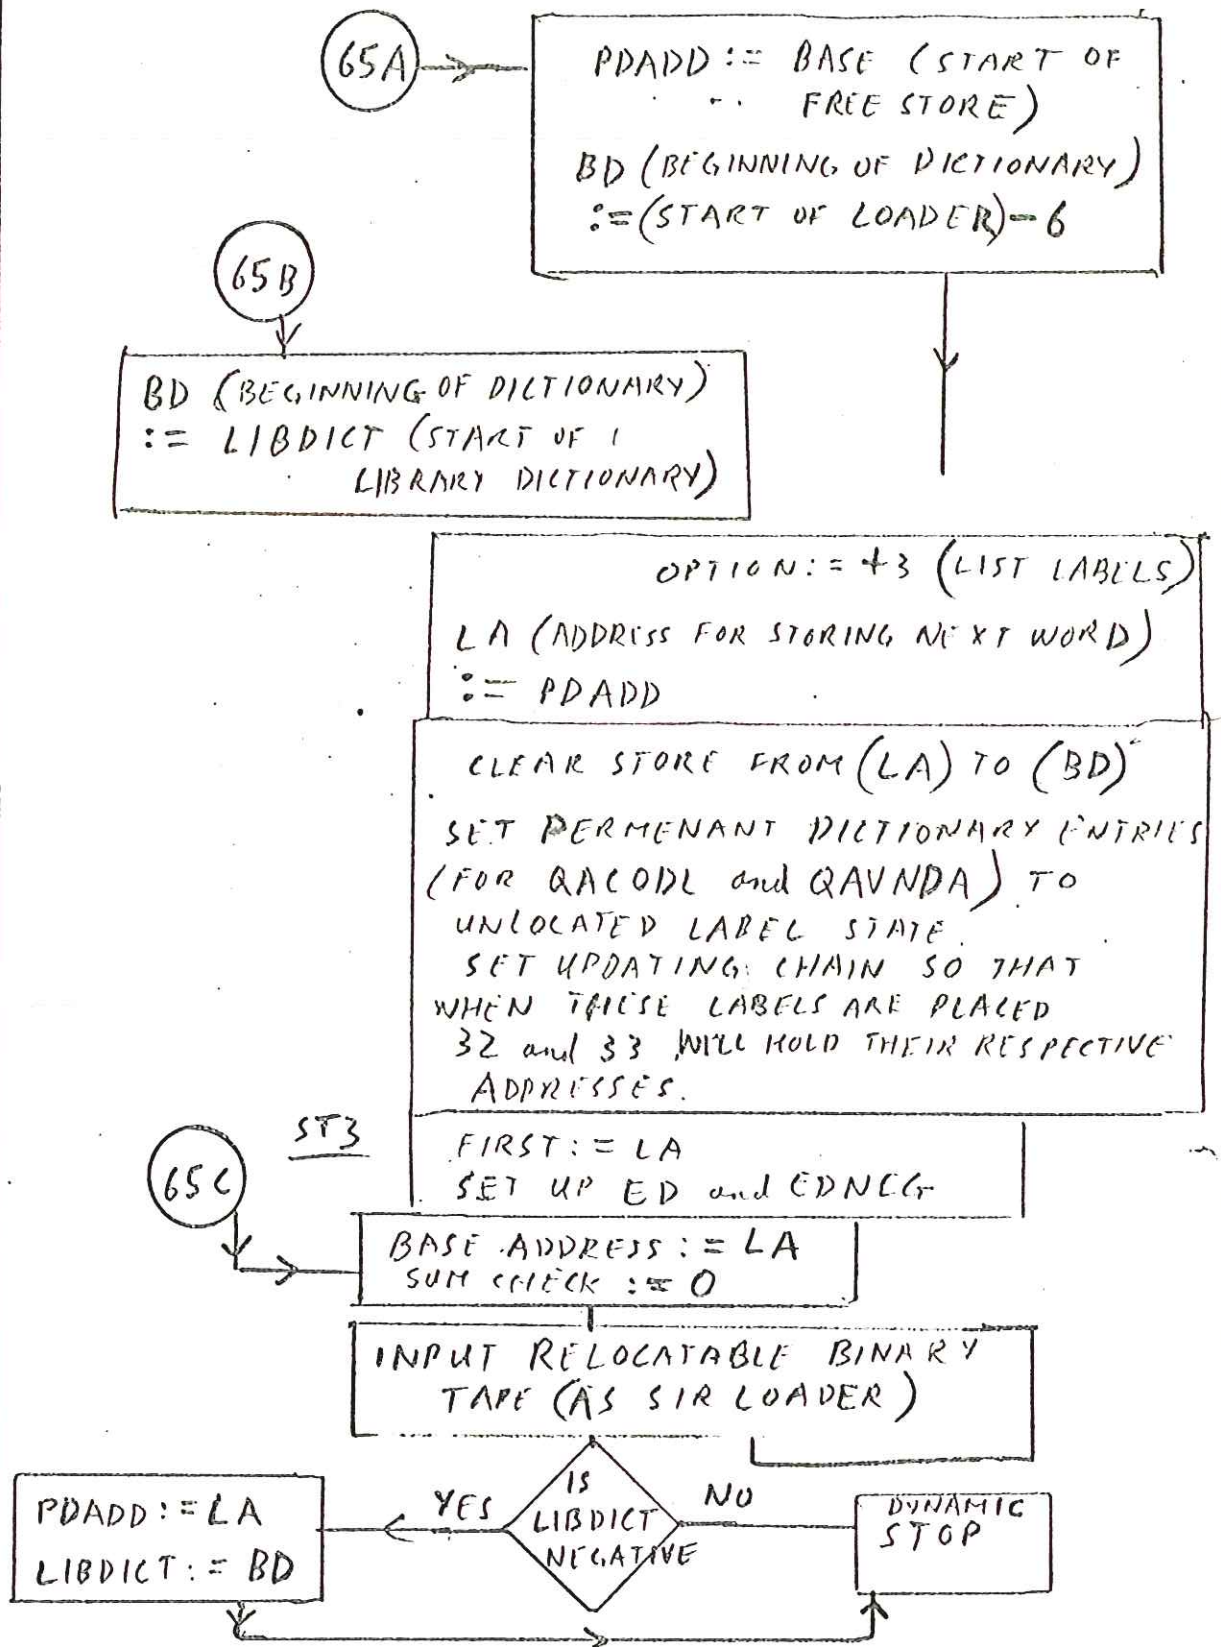 65A
PDADD := BASE (START OF
FREE STORE)
BD (BEGINNING OF DICTIONARY)
:= (START OF LOADER) - 6
65B
BD (BEGINNING OF DICTIONARY)
:= LIBDICT (START OF
LIBRARY DICTIONARY)
OPTION := +3 (LIST LABELS)
LA (ADDRESS FOR STORING NEXT WORD)
:= PDADD
CLEAR STORE FROM (LA) TO (BD)
SET PERMENANT DICTIONARY ENTRIES
(FOR QACODL and QAVNDA) TO
UNLOCATED LABEL STATE.
SET UPDATING CHAIN SO THAT
WHEN THESE LABELS ARE PLACED
32 and 33 WILL HOLD THEIR RESPECTIVE
ADDRESSES.
ST3
FIRST := LA
SET UP ED and EDNEG
65C
BASE ADDRESS := LA
SUM CHECK := 0
INPUT RELOCATABLE BINARY
TAPE (AS SIR LOADER)
IS
LIBDICT
NEGATIVE
YES
NO
PDADD := LA
LIBDICT := BD
DYNAMIC
STOP